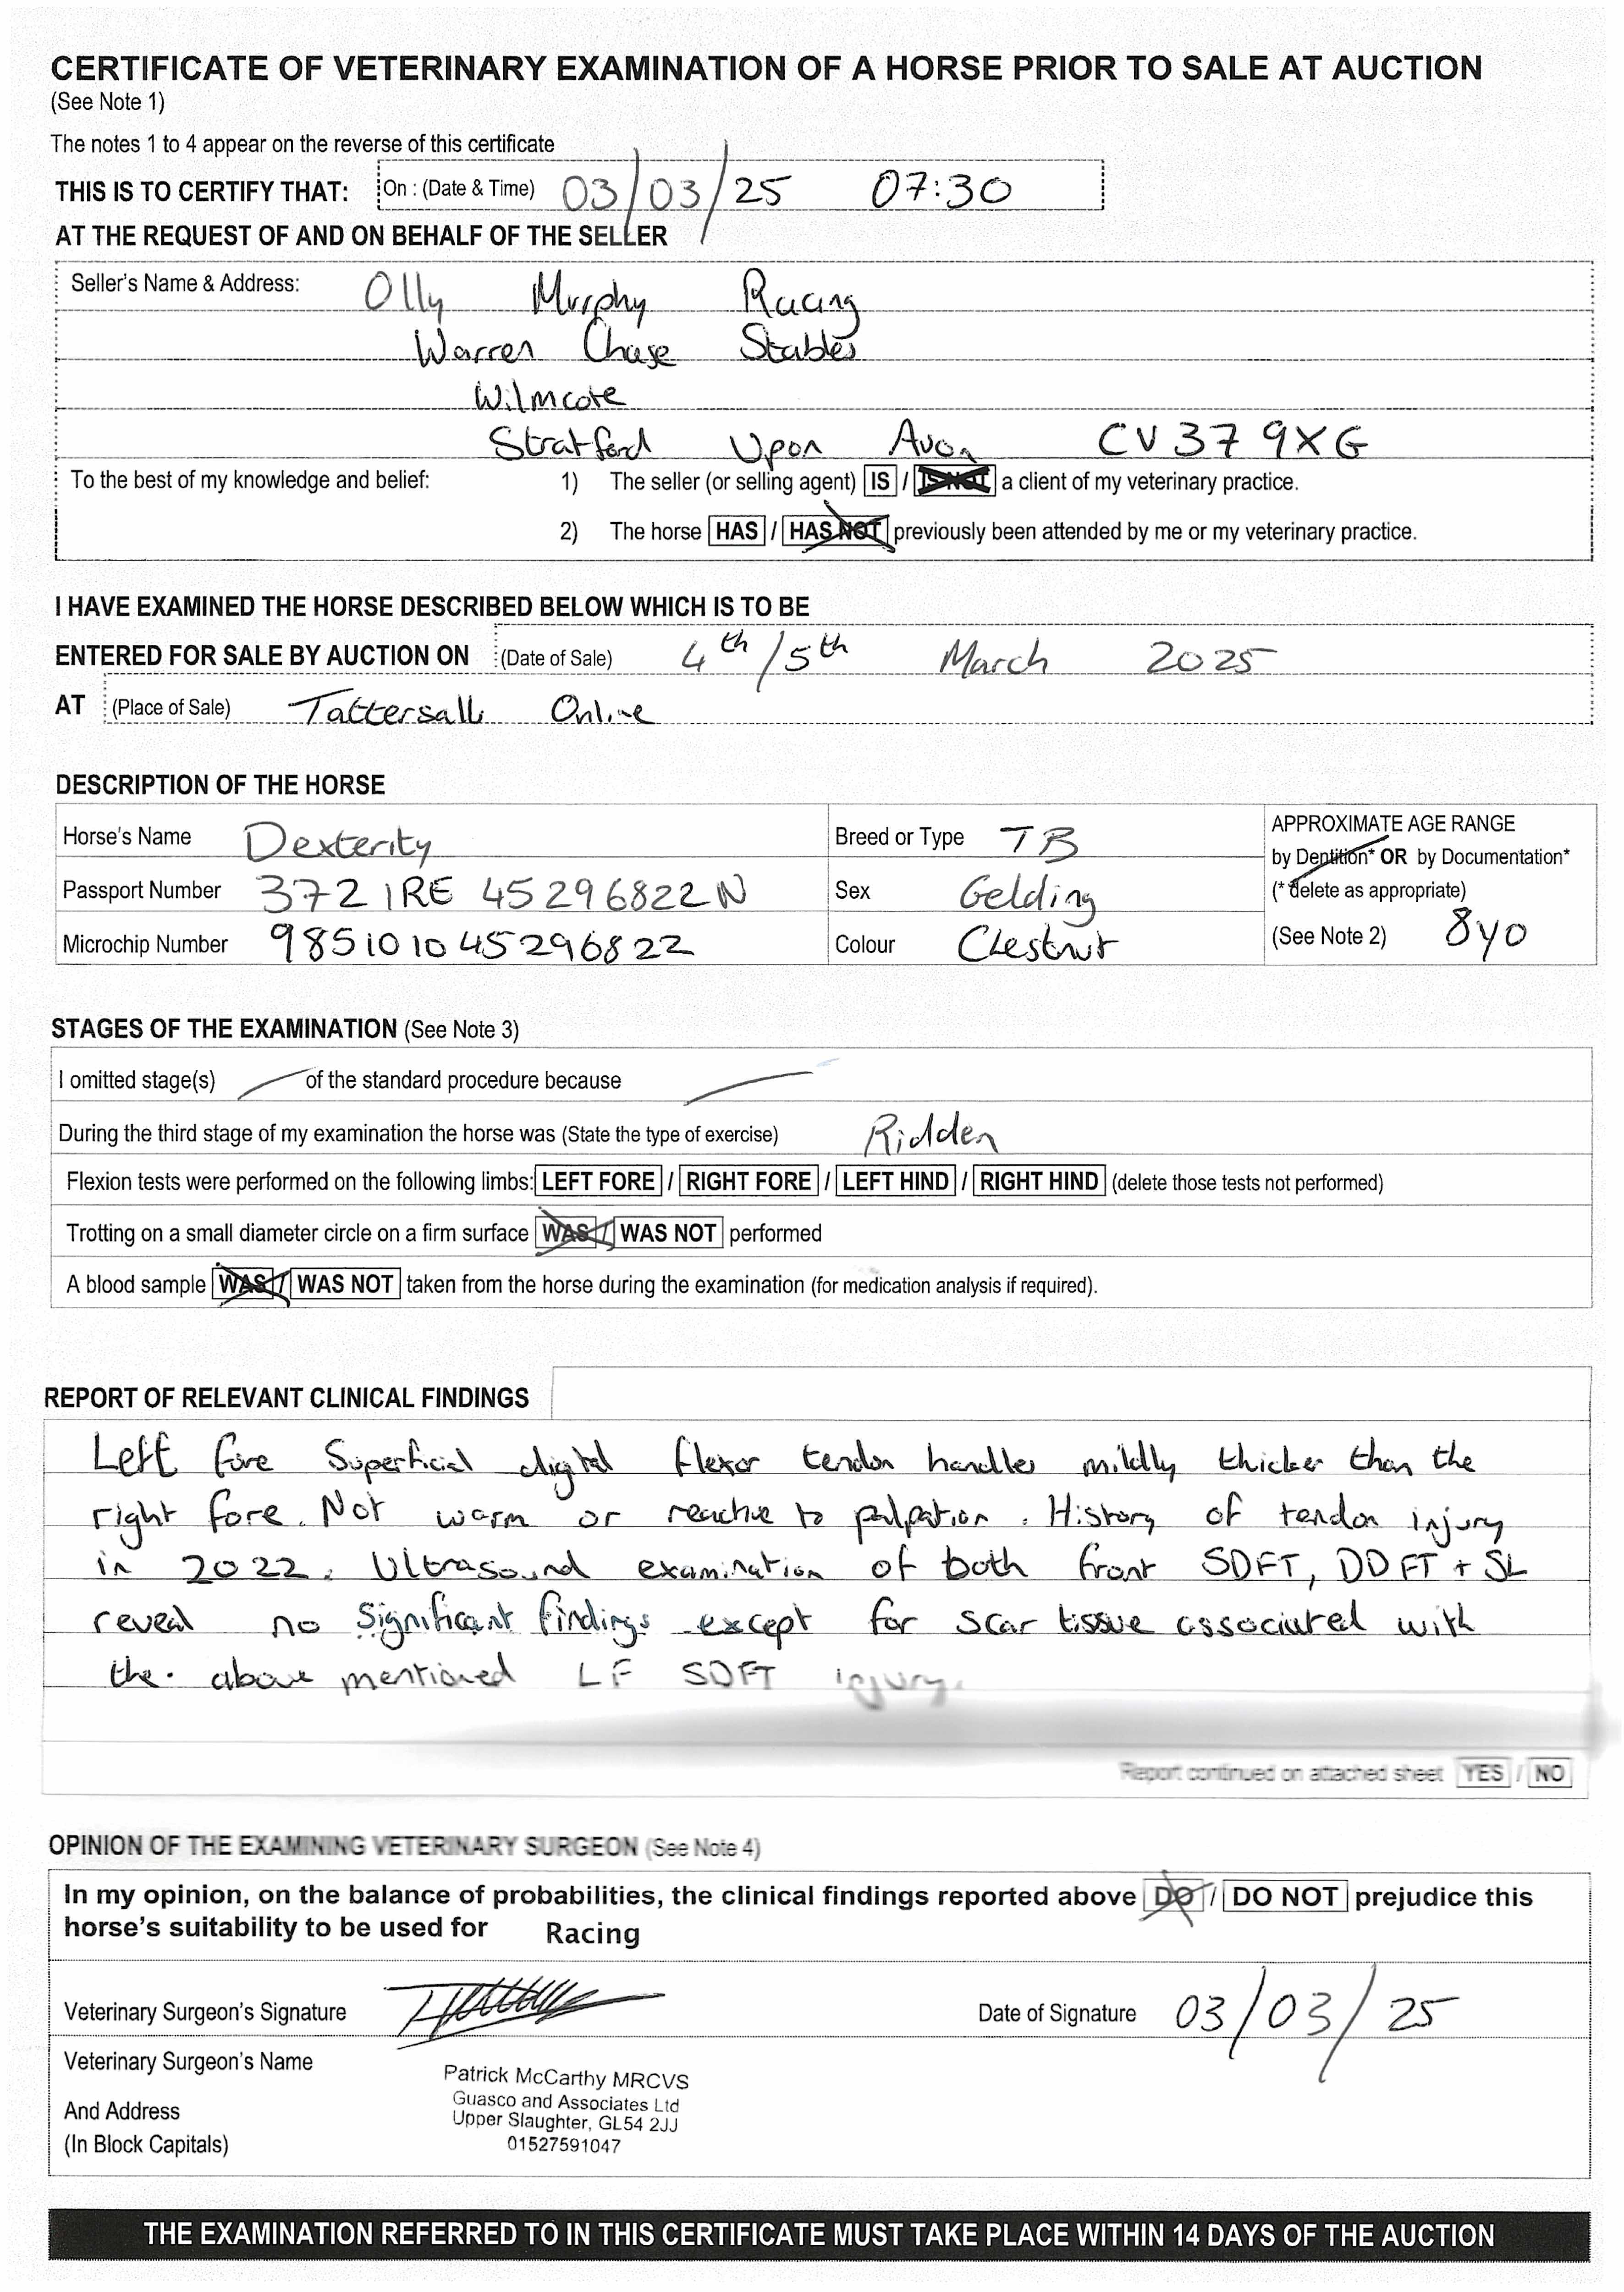 CERTIFICATE OF VETERINARY EXAMINATION OF A HORSE PRIOR TO SALE AT AUCTION
(See Note 1)
The notes 1 to 4 appear on the reverse of this certificate
THIS IS TO CERTIFY THAT: On : (Date & Time) 03/03/25 07:30
AT THE REQUEST OF AND ON BEHALF OF THE SELLER
Seller's Name & Address: Olly Murphy Racing
Warren Chase Stables
Wilmcote
Stratford Upon Avon CV37 9XG
To the best of my knowledge and belief: 1) The seller (or selling agent) IS / IS NOT a client of my veterinary practice.
2) The horse HAS / HAS NOT previously been attended by me or my veterinary practice.
I HAVE EXAMINED THE HORSE DESCRIBED BELOW WHICH IS TO BE
ENTERED FOR SALE BY AUCTION ON (Date of Sale) 4th/5th March 2025
AT (Place of Sale) Tattersalls Online
DESCRIPTION OF THE HORSE
Horse's Name Dexterity Breed or Type TB APPROXIMATE AGE RANGE
by Dentition* OR by Documentation*
Passport Number 372 IRE 45296822N Sex Gelding (*delete as appropriate)
Microchip Number 985101045296822 Colour Chestnut (See Note 2) 8yo
STAGES OF THE EXAMINATION (See Note 3)
I omitted stage(s) of the standard procedure because
During the third stage of my examination the horse was (State the type of exercise) Ridden
Flexion tests were performed on the following limbs: LEFT FORE / RIGHT FORE / LEFT HIND / RIGHT HIND (delete those tests not performed)
Trotting on a small diameter circle on a firm surface WAS / WAS NOT performed
A blood sample WAS / WAS NOT taken from the horse during the examination (for medication analysis if required).
REPORT OF RELEVANT CLINICAL FINDINGS
Left fore Superficial digital flexor tendon handles mildly thicker than the
right fore. Not warm or reactive to palpation. History of tendon injury
in 2022. Ultrasound examination of both front SDFT, DDFT + SL
reveal no significant findings except for scar tissue associated with
the above mentioned LF SDFT injury.
Report continued on attached sheet YES / NO
OPINION OF THE EXAMINING VETERINARY SURGEON (See Note 4)
In my opinion, on the balance of probabilities, the clinical findings reported above DO / DO NOT prejudice this
horse's suitability to be used for Racing
Veterinary Surgeon's Signature Date of Signature 03/03/25
Veterinary Surgeon's Name Patrick McCarthy MRCVS
Guasco and Associates Ltd
And Address Upper Slaughter, GL54 2JJ
(In Block Capitals) 01527591047
THE EXAMINATION REFERRED TO IN THIS CERTIFICATE MUST TAKE PLACE WITHIN 14 DAYS OF THE AUCTION